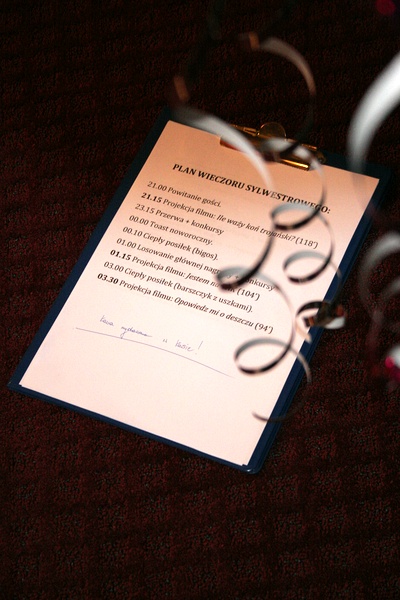 PLAN WIECZORU SYLWESTROWEGO:
21.00 Powitanie gości.
21.15 Projekcja filmu: Ile waży koń trojański? (118')
23.15 Przerwa + konkursy
00.00 Toast noworoczny.
00.10 Ciepły posiłek (bigos).
01.00 Losowanie głównej nagrody + konkursy
01.15 Projekcja filmu: Jestem (104')
03.00 Ciepły posiłek (barszczyk z uszkami).
03.30 Projekcja filmu: Opowiedz mi o deszczu (94')
kawa wydawana w kasie!